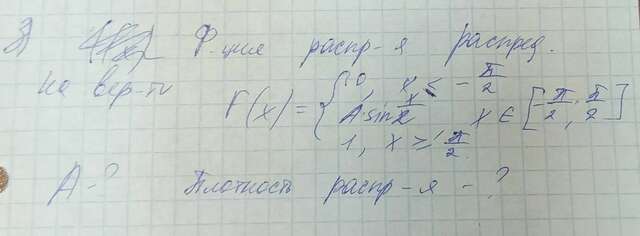 3) Ф-ция распр-я распред.
на вер-ти
F(x) = { 0, x ≤ -π/2
A·sin x/2 x ∈ [-π/2; π/2]
1, x ≥ π/2.
A - ? Плотность распр-я - ?